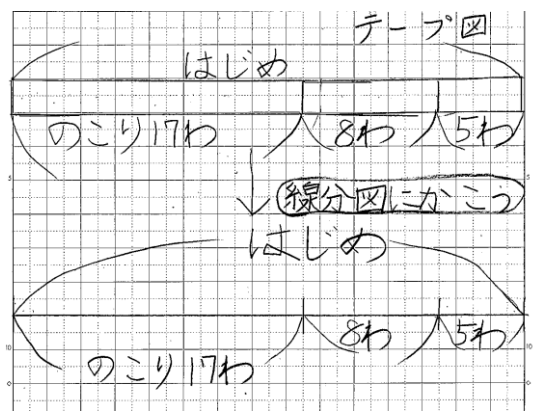 テープ図
はじめ
のこり17わ 8わ 5わ
線分図にかこう
はじめ
8わ 5わ
のこり17わ
5 5
10 10
0 0